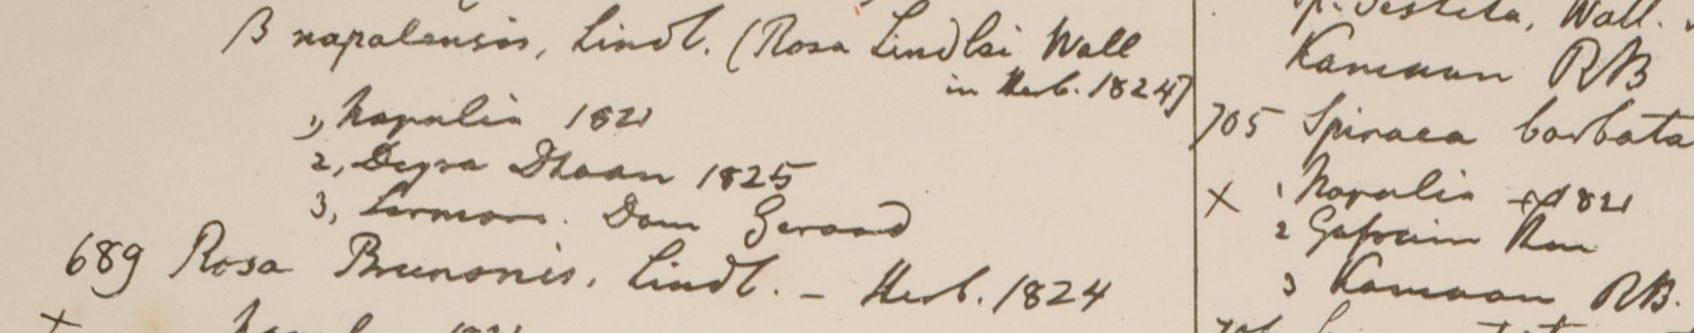 β napalensis, Lindl. (Rosa Lindlei Wall
in Herb. 1824)
1, Napalia 1821
2, Deyra Dhoon 1825
3, Sirmore. Dom Gerard
689 Rosa Brunonis, Lindl. – Herb. 1824
Wall.
Kamaon RB
705 Spiraea barbata
x 1 Napalia 1821
2
3 Kamaon RB.